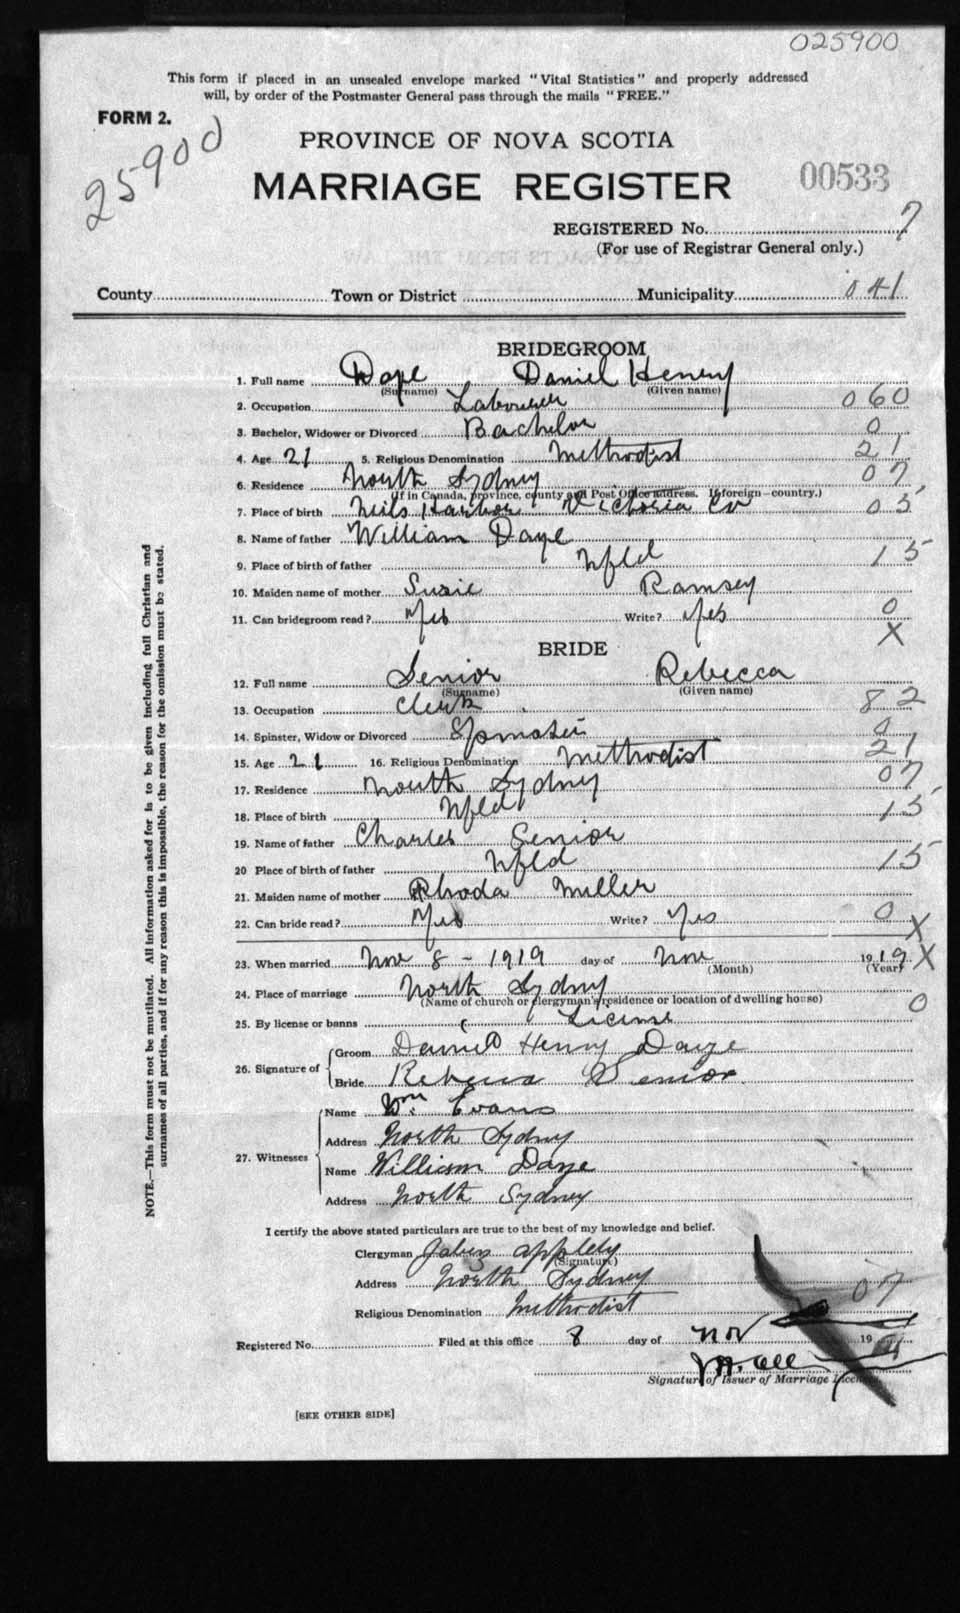 025900
This form if placed in an unsealed envelope marked "Vital Statistics" and properly addressed
will, by order of the Postmaster General pass through the mails "FREE."
FORM 2.
25900
PROVINCE OF NOVA SCOTIA
MARRIAGE REGISTER 00533
REGISTERED No. 7
(For use of Registrar General only.)
County Town or District Municipality 041
BRIDEGROOM
1. Full name Daye Daniel Henry
(Surname) (Given name)
2. Occupation Labourer 060
3. Bachelor, Widower or Divorced Bachelor 0
4. Age 21 5. Religious Denomination Methodist 21
6. Residence North Sydney 07
(If in Canada, province, county and Post Office address. If foreign—country.)
7. Place of birth Neils Harbor Victoria Co 05
8. Name of father William Daye
9. Place of birth of father Nfld 15
10. Maiden name of mother Susie Ramsey
11. Can bridegroom read? Yes Write? Yes 0
X
BRIDE
12. Full name Senior Rebecca
(Surname) (Given name)
13. Occupation Clerk 82
14. Spinster, Widow or Divorced Spinster 0
15. Age 21 16. Religious Denomination Methodist 21
17. Residence North Sydney 07
18. Place of birth Nfld 15
19. Name of father Charles Senior
20 Place of birth of father Nfld 15
21. Maiden name of mother Rhoda Miller
22. Can bride read? Yes Write? Yes 0 X
23. When married Nov 8 - 1919 day of Nov 1919 X
(Month) (Year)
24. Place of marriage North Sydney
(Name of church or clergyman's residence or location of dwelling house) 0
25. By license or banns License
26. Signature of Groom Daniel Henry Daye
Bride Rebecca Senior
27. Witnesses Name Wm. Evans
Address North Sydney
Name William Daye
Address North Sydney
I certify the above stated particulars are true to the best of my knowledge and belief.
Clergyman Jabez Appleby
(Signature)
Address North Sydney 07
Religious Denomination Methodist
Registered No. Filed at this office 8 day of Nov 19
Signature of Issuer of Marriage License
[SEE OTHER SIDE]
NOTE.—This form must not be mutilated. All information asked for is to be given including full Christian and
surnames of all parties, and if for any reason this is impossible, the reason for the omission must be stated.